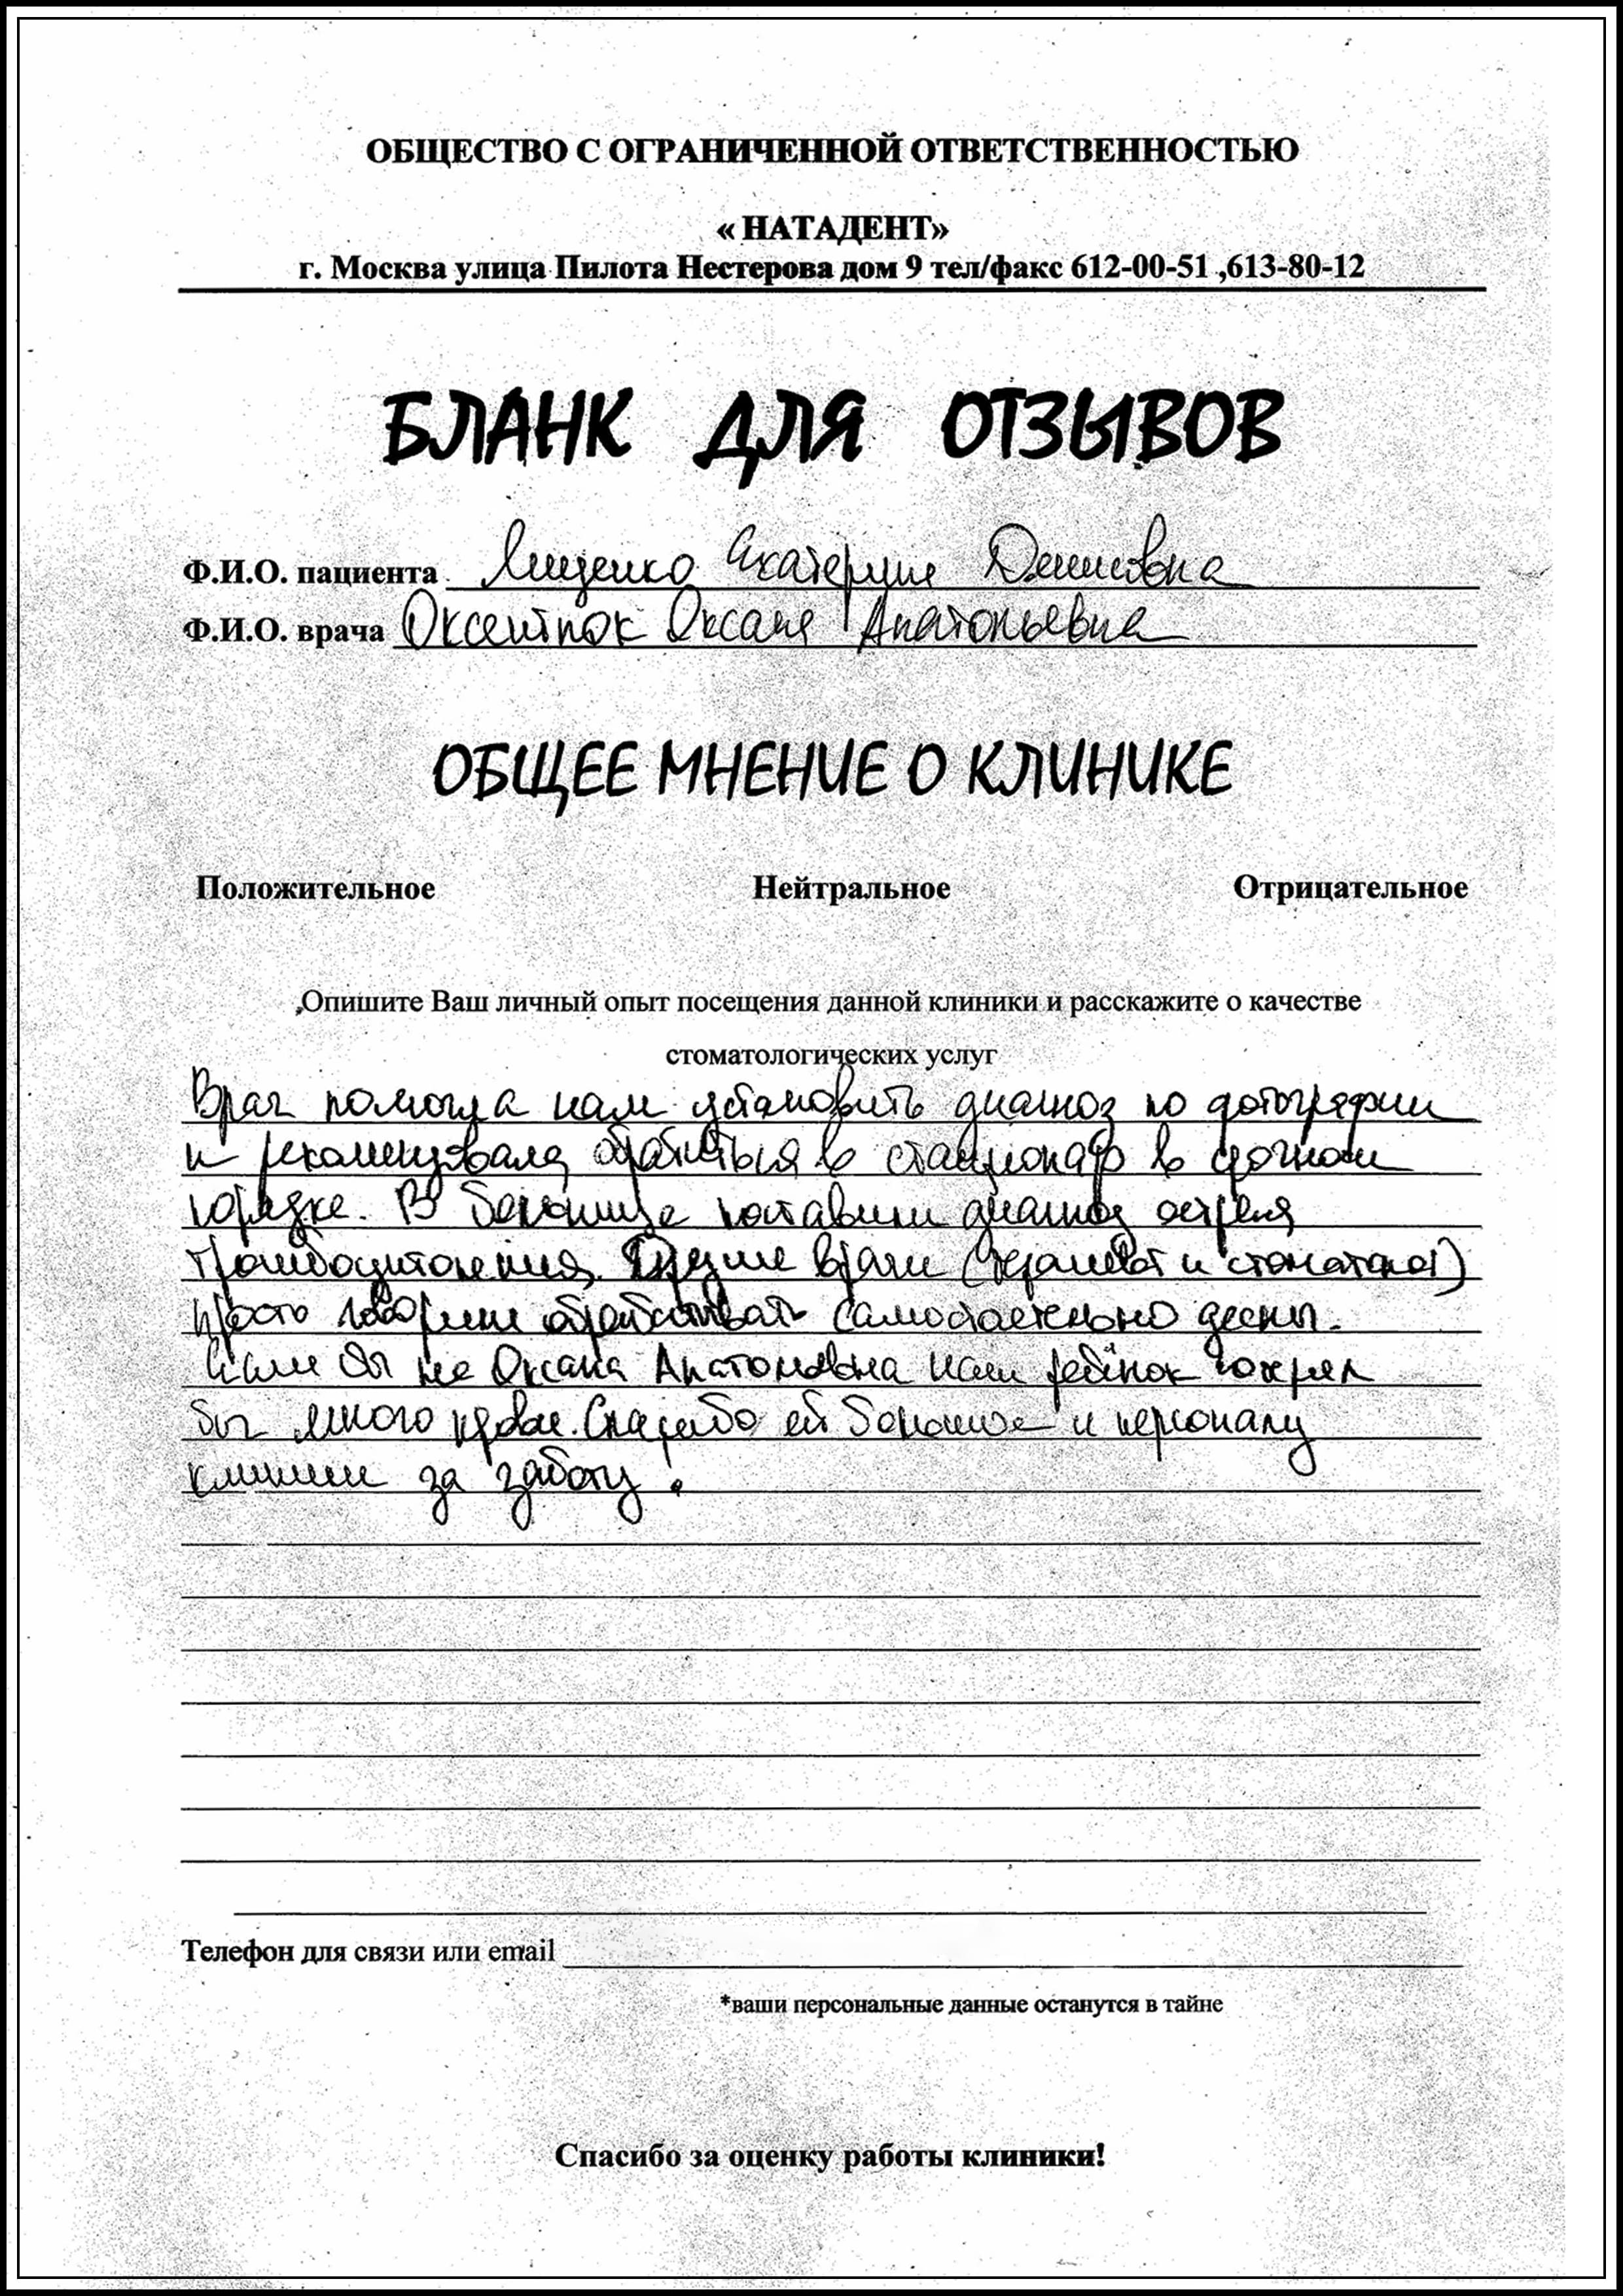 ОБЩЕСТВО С ОГРАНИЧЕННОЙ ОТВЕТСТВЕННОСТЬЮ
« НАТАДЕНТ»
г. Москва улица Пилота Нестерова дом 9 тел/факс 612-00-51 ,613-80-12
БЛАНК ДЛЯ ОТЗЫВОВ
Ф.И.О. пациента Ященко Екатерина Денисовна
Ф.И.О. врача Оксентюк Оксана Анатольевна
ОБЩЕЕ МНЕНИЕ О КЛИНИКЕ
Положительное Нейтральное Отрицательное
Опишите Ваш личный опыт посещения данной клиники и расскажите о качестве
стоматологических услуг
Врач помогла нам установить диагноз по фотографии
и рекомендовала обратиться в стационар в срочном
порядке. В больнице поставили диагноз острая
тромбоцитопения. Другие врачи (терапевт и стоматолог)
просто говорили обрабатывать самостоятельно десны.
Если бы не Оксана Анатольевна наш ребёнок потерял
бы много крови. Спасибо ей большое и персоналу
клиники за заботу!
Телефон для связи или email
*ваши персональные данные останутся в тайне
Спасибо за оценку работы клиники!